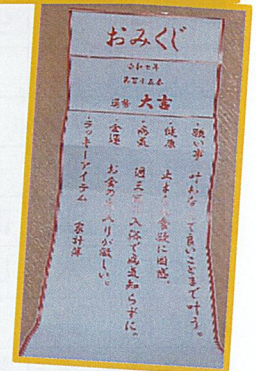 おみくじ
令和七年
第百十五番
運勢 大吉
・願い事 叶わなくて良いことまで叶う。
・健康 止まらぬ食欲に困惑。
・病気 週三の入浴で病気知らずに。
・金運 お金の出入りが激しい。
・ラッキーアイテム 家計簿